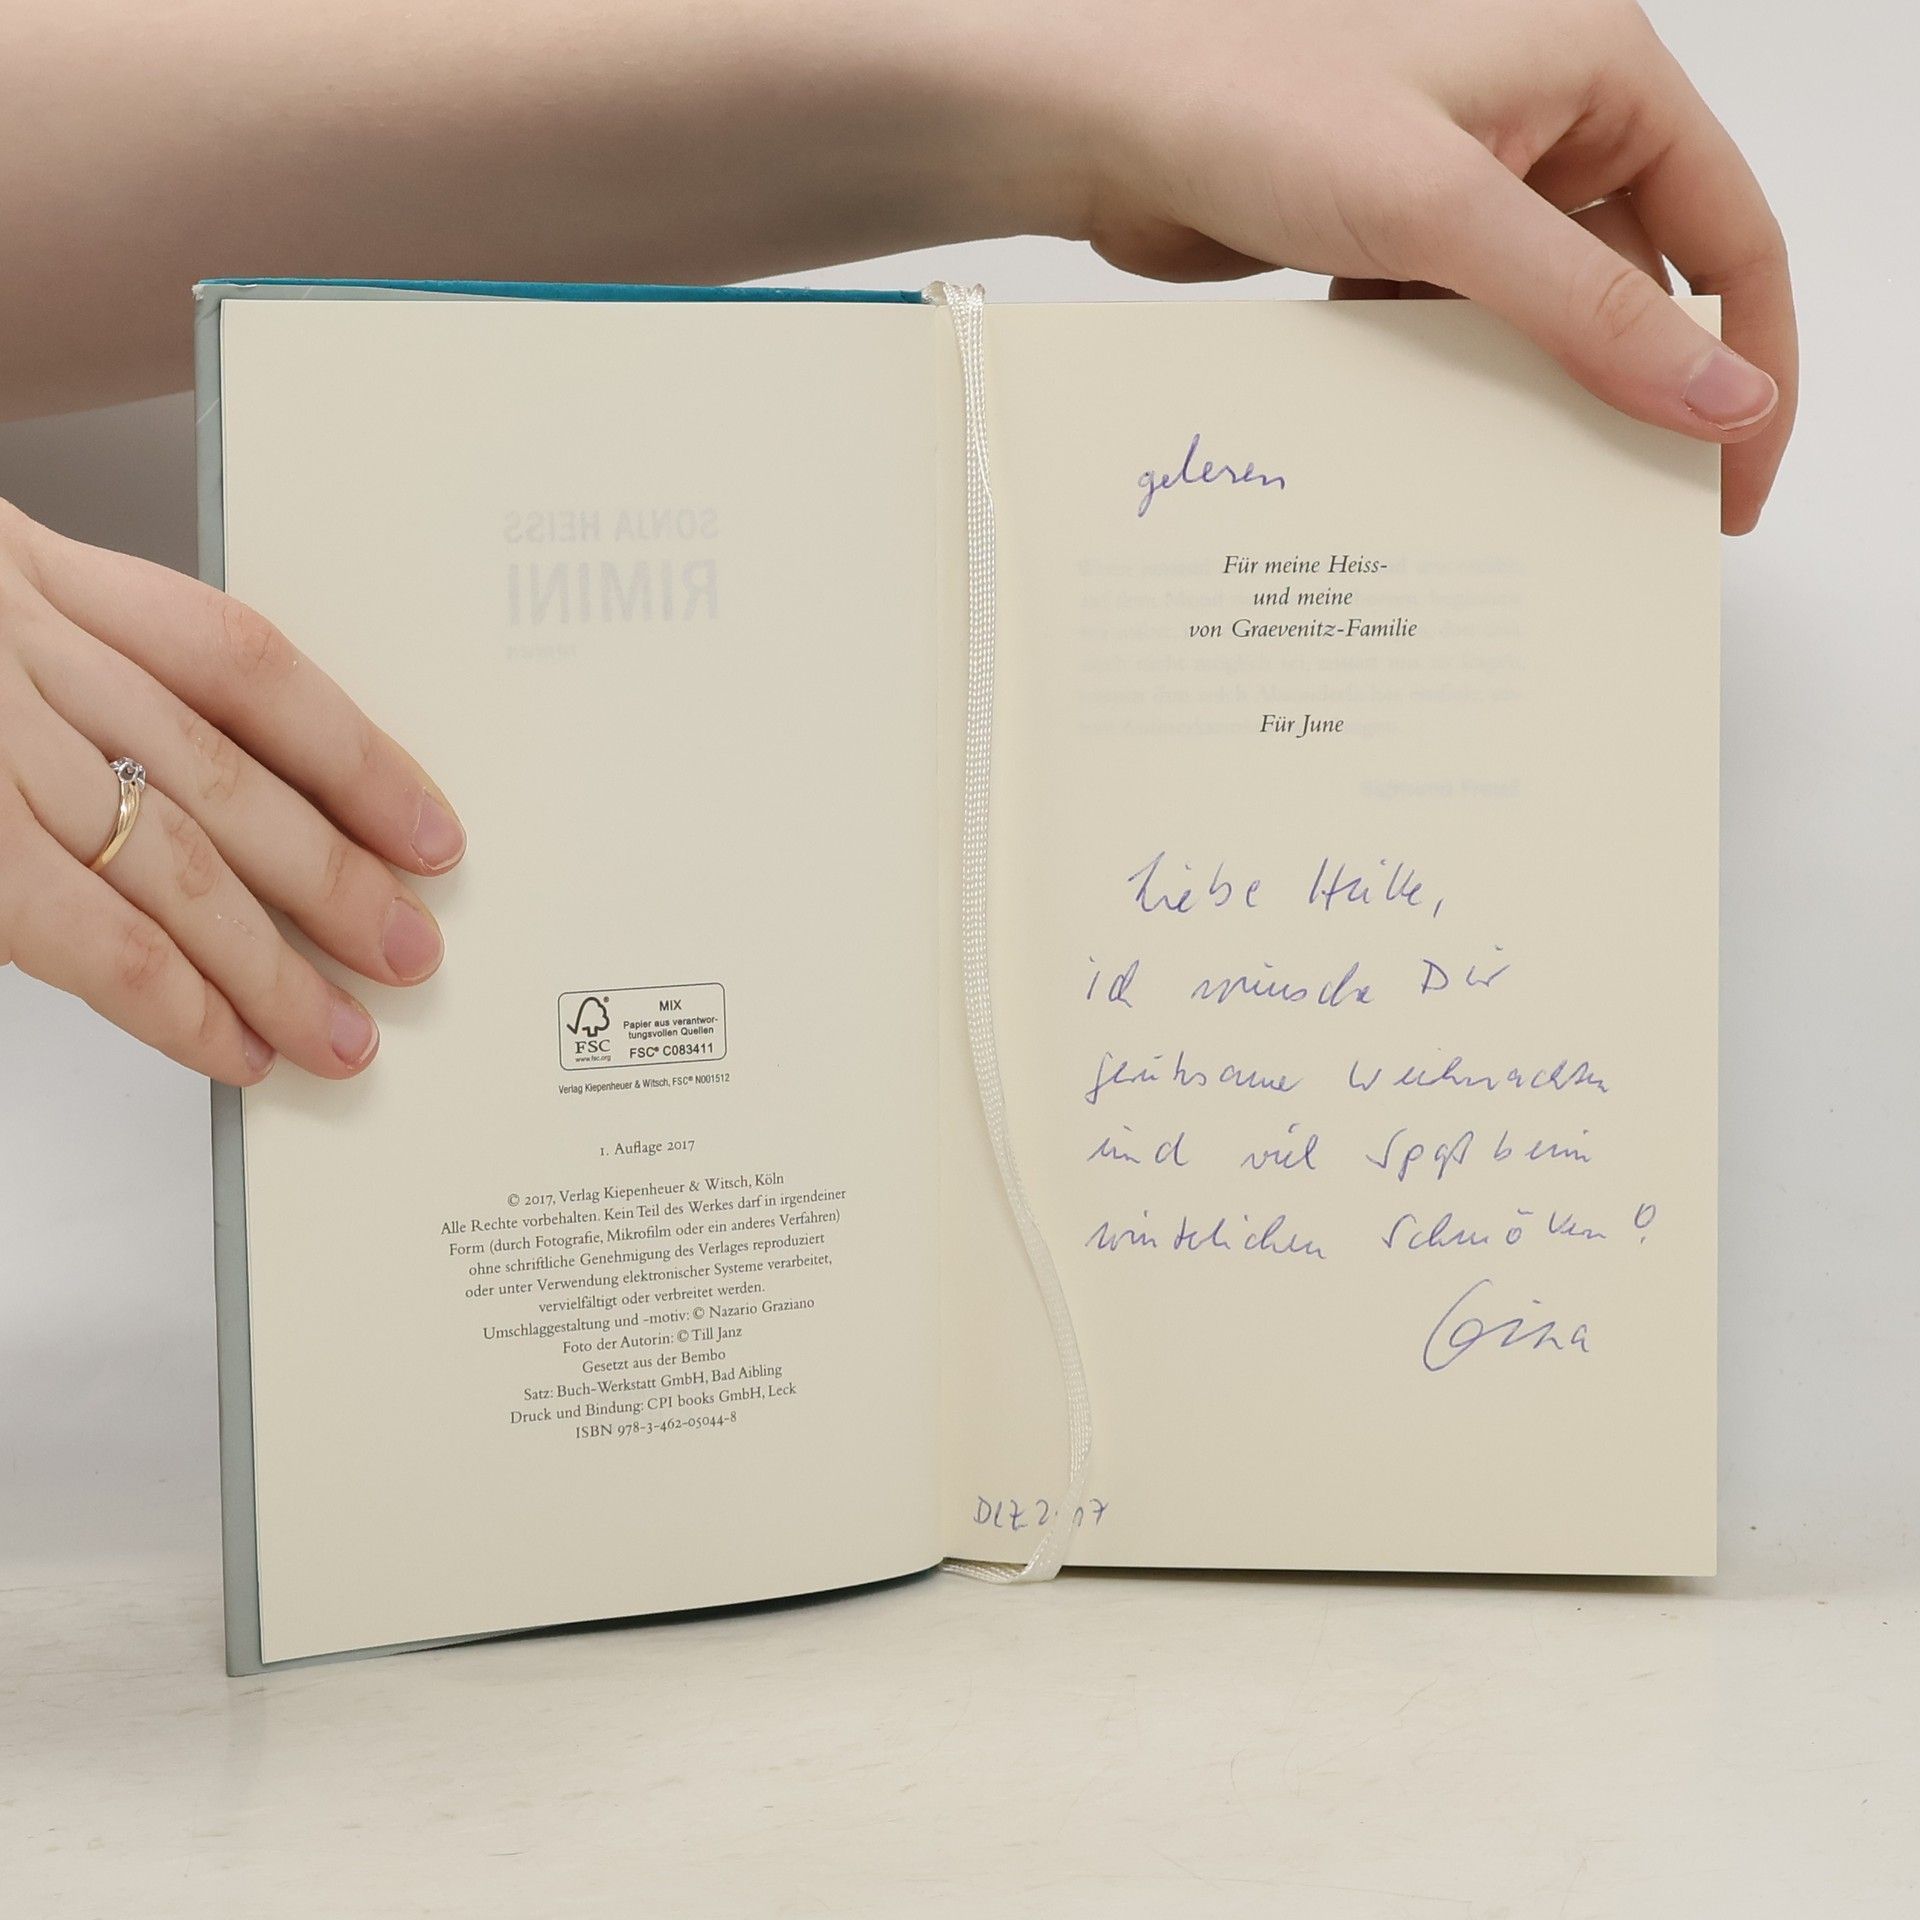 SONJA HEISS
RIMINI
roman
MIX
Papier aus verantwor-
tungsvollen Quellen
FSC® C083411
FSC
www.fsc.org
Verlag Kiepenheuer & Witsch, FSC® N001512
1. Auflage 2017
© 2017, Verlag Kiepenheuer & Witsch, Köln
Alle Rechte vorbehalten. Kein Teil des Werkes darf in irgendeiner
Form (durch Fotografie, Mikrofilm oder ein anderes Verfahren)
ohne schriftliche Genehmigung des Verlages reproduziert
oder unter Verwendung elektronischer Systeme verarbeitet,
vervielfältigt oder verbreitet werden.
Umschlaggestaltung und -motiv: © Nazario Graziano
Foto der Autorin: © Till Janz
Gesetzt aus der Bembo
Satz: Buch-Werkstatt GmbH, Bad Aibling
Druck und Bindung: CPI books GmbH, Leck
ISBN 978-3-462-05044-8
gelesen
Für meine Heiss-
und meine
von Graevenitz-Familie
Für June
Liebe
ich wünsche Dir
geruhsame Weihnachten
und viel Spaß beim
winterlichen Schmökern!
Gina